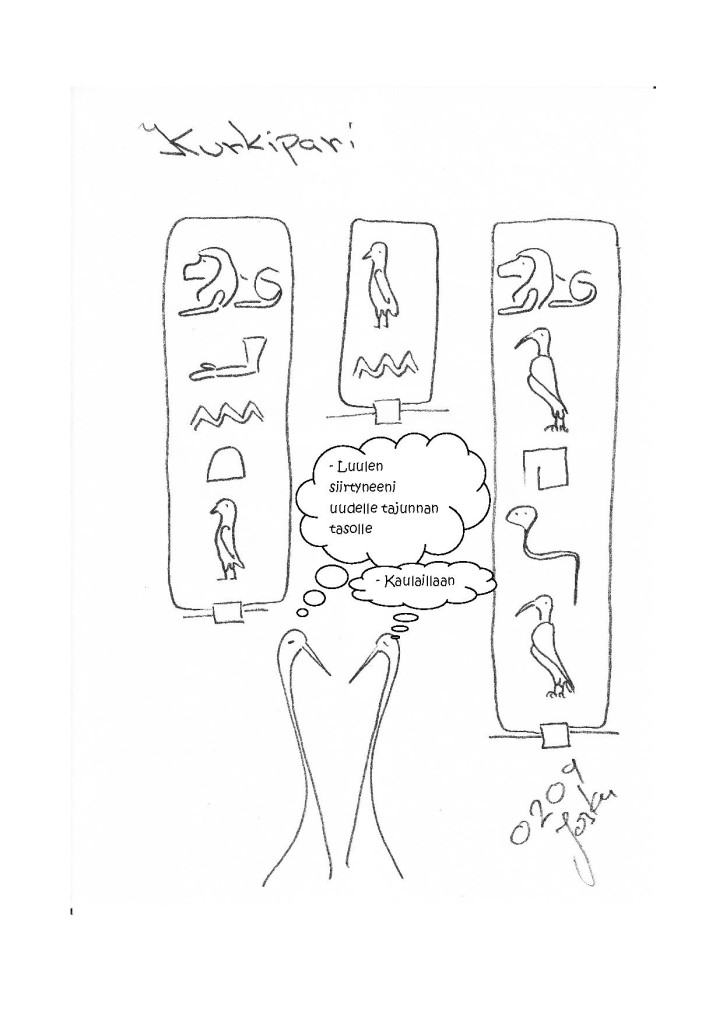 Kurkipari
- Luulen
siirtyneeni
uudelle tajunnan
tasolle
- Kaulaillaan
0209